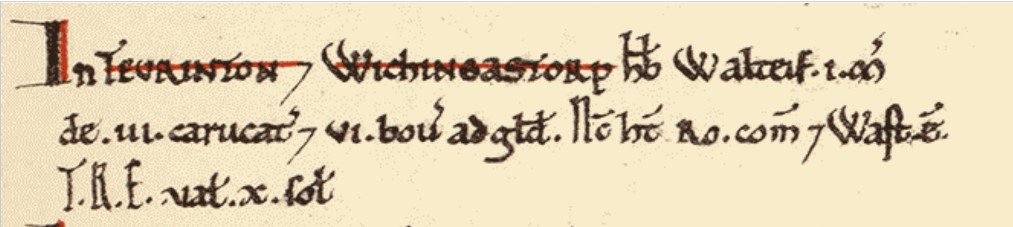 In TEURINTON ⁊ WichINGASTORP hb̄ Walteif .i. m̄
de .iii. carucat̄ ⁊ vi. bou̅ ad gld̄. Nc̄ ht̄ Ro. com̄ ⁊ Waſt ē.
T.R.E. ual̄. x. ſol̄